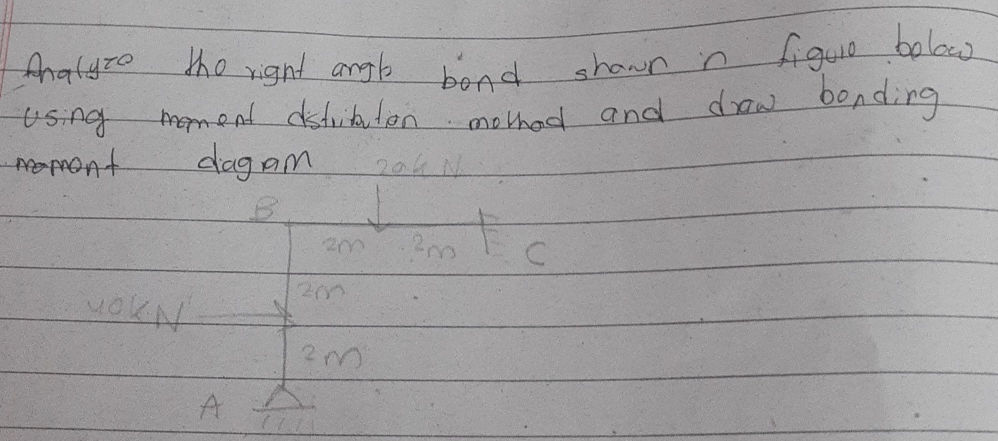 Analyze the right angle bend shown in figure below
using moment distribution method and draw bending
moment diagam
20kN
B
2m 2m C
2m
40kN
2m
A